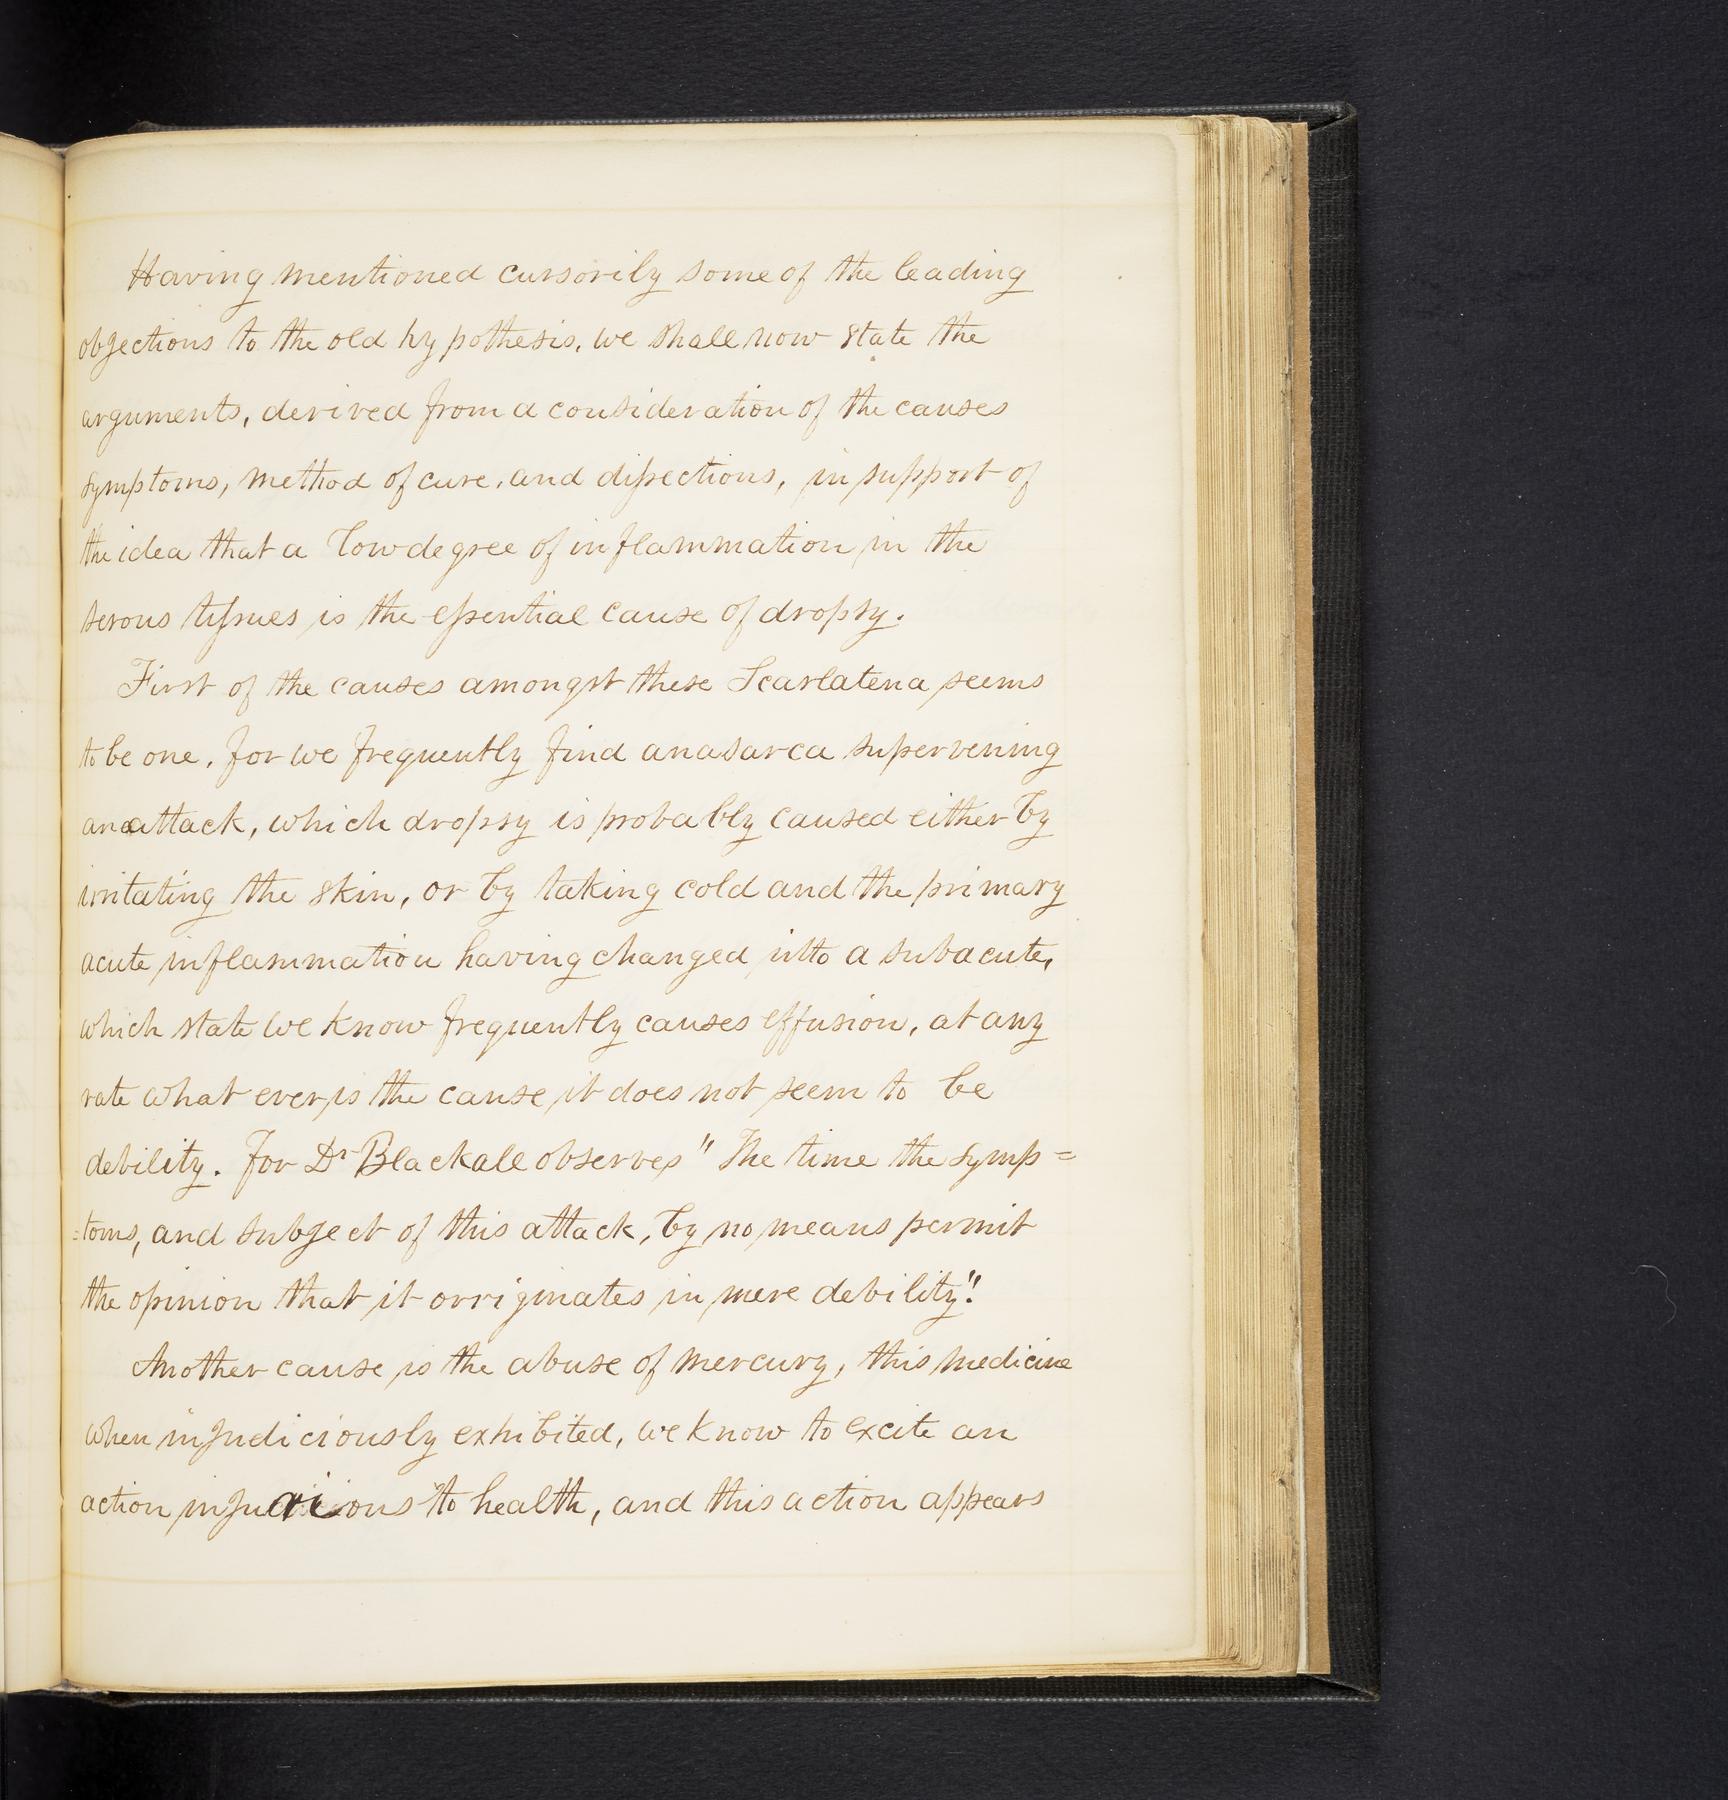 Having mentioned cursorily some of the leading
objections to the old hypothesis, we shall now state the
arguments, derived from a consideration of the causes
symptoms, method of cure, and dissections, in support of
the idea that a low degree of inflammation in the
serous tissues is the essential cause of dropsy.
First of the causes amongst these Scarlatena seems
to be one, for we frequently find anasarca supervening
an attack, which dropsy is probably caused either by
irritating the skin, or by taking cold and the primary
acute inflammation having changed into a subacute,
which state we know frequently causes effusion, at any
rate what ever is the cause it does not seem to be
debility. For Dr Blackall observes "The time the symp=
=toms, and subject of this attack, by no means permit
the opinion that it orriginates in mere debility".
Another cause is the abuse of mercury, this medicine
when injudiciously exhibited, we know to excite an
action injurious to health, and this action appears